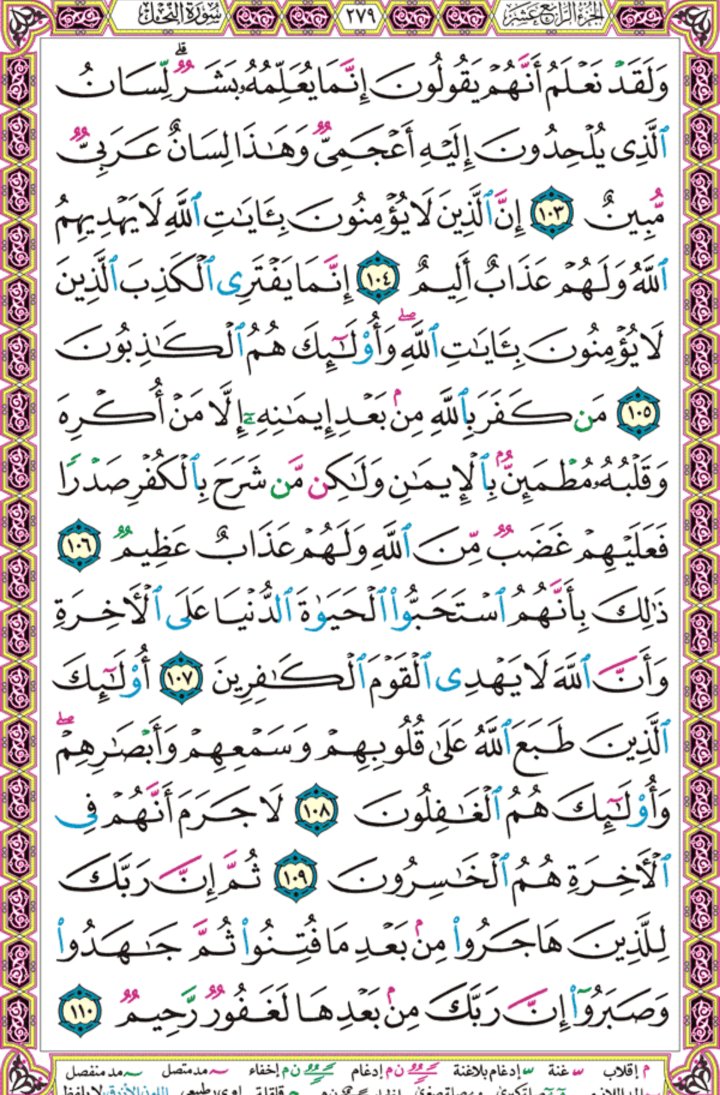 الجزء الرابع عشر ٢٧٩ سورة النحل
وَلَقَدْ نَعْلَمُ أَنَّهُمْ يَقُولُونَ إِنَّمَا يُعَلِّمُهُۥ بَشَرٌۗ لِّسَانُ
ٱلَّذِى يُلْحِدُونَ إِلَيْهِ أَعْجَمِىٌّ وَهَـٰذَا لِسَانٌ عَرَبِىٌّ
مُّبِينٌ ١٠٣ إِنَّ ٱلَّذِينَ لَا يُؤْمِنُونَ بِـَٔايَـٰتِ ٱللَّهِ لَا يَهْدِيهِمُ
ٱللَّهُ وَلَهُمْ عَذَابٌ أَلِيمٌ ١٠٤ إِنَّمَا يَفْتَرِى ٱلْكَذِبَ ٱلَّذِينَ
لَا يُؤْمِنُونَ بِـَٔايَـٰتِ ٱللَّهِۖ وَأُو۟لَـٰٓئِكَ هُمُ ٱلْكَـٰذِبُونَ
١٠٥ مَن كَفَرَ بِٱللَّهِ مِنۢ بَعْدِ إِيمَـٰنِهِۦٓ إِلَّا مَنْ أُكْرِهَ
وَقَلْبُهُۥ مُطْمَئِنٌّۢ بِٱلْإِيمَـٰنِ وَلَـٰكِن مَّن شَرَحَ بِٱلْكُفْرِ صَدْرًا
فَعَلَيْهِمْ غَضَبٌ مِّنَ ٱللَّهِ وَلَهُمْ عَذَابٌ عَظِيمٌ ١٠٦
ذَٰلِكَ بِأَنَّهُمُ ٱسْتَحَبُّوا۟ ٱلْحَيَوٰةَ ٱلدُّنْيَا عَلَى ٱلْـَٔاخِرَةِ
وَأَنَّ ٱللَّهَ لَا يَهْدِى ٱلْقَوْمَ ٱلْكَـٰفِرِينَ ١٠٧ أُو۟لَـٰٓئِكَ
ٱلَّذِينَ طَبَعَ ٱللَّهُ عَلَىٰ قُلُوبِهِمْ وَسَمْعِهِمْ وَأَبْصَـٰرِهِمْۖ
وَأُو۟لَـٰٓئِكَ هُمُ ٱلْغَـٰفِلُونَ ١٠٨ لَا جَرَمَ أَنَّهُمْ فِى
ٱلْـَٔاخِرَةِ هُمُ ٱلْخَـٰسِرُونَ ١٠٩ ثُمَّ إِنَّ رَبَّكَ
لِلَّذِينَ هَاجَرُوا۟ مِنۢ بَعْدِ مَا فُتِنُوا۟ ثُمَّ جَـٰهَدُوا۟
وَصَبَرُوٓا۟ إِنَّ رَبَّكَ مِنۢ بَعْدِهَا لَغَفُورٌ رَّحِيمٌ ١١٠
م إقلاب غنة إدغام بلاغنة ن م إدغام ن م إخفاء مد متصل مد منفصل